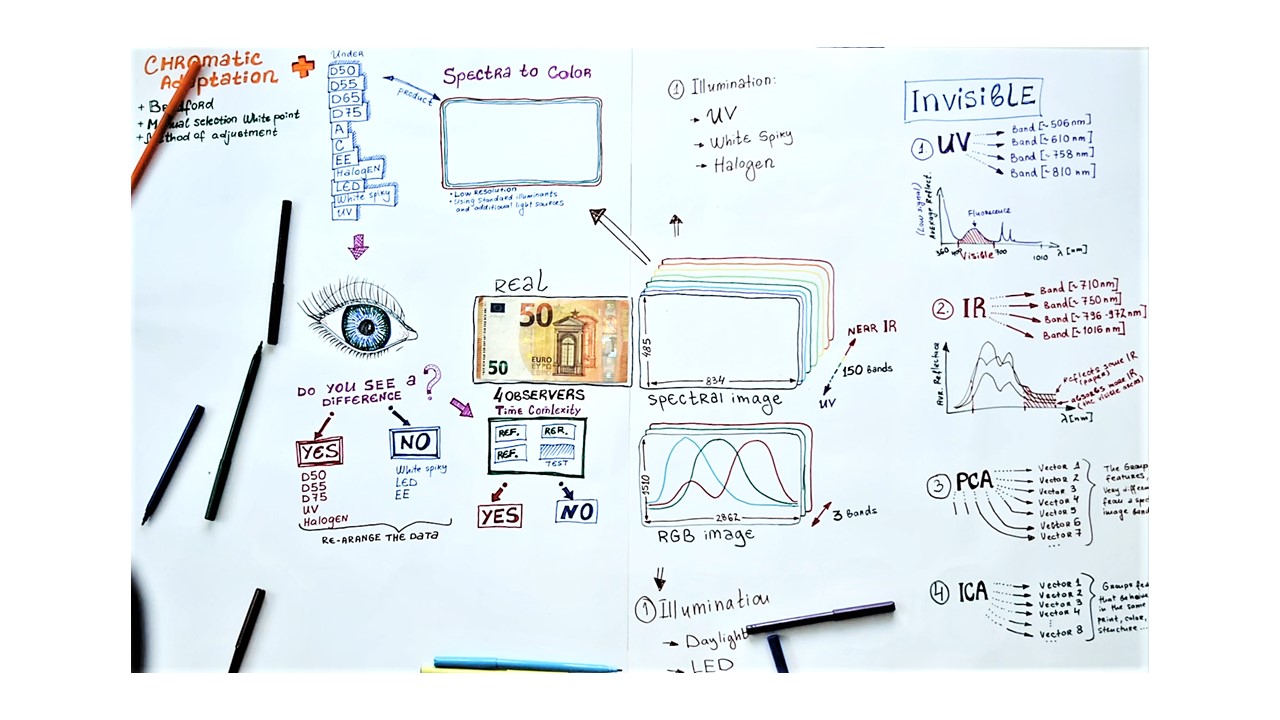 CHROMATIC
Adaptation
+ Bradford
+ Manual selection White point
+ Method of adjustment
Under
D50
D55
D65
D75
A
C
EE
HALOGEN
LED
White spiky
UV
product
SPECTRA TO COLOR
• Low Resolution
• Using standard illuminants
and "additional" light sources
DO YOU SEE a ?
DIFFERENCE
YES
NO
D50
D55
D75
UV
Halogen
White spiky
LED
EE
RE-ARANGE THE DATA
REAL
50
EURO
ΕΥΡΩ
50
4 OBSERVERS
Time Comlexity
REF.
RER.
REF.
TEST
YES
NO
1 Illumination:
→ UV
→ White Spiky
→ Halogen
485
834
SPECTRAL image
NEAR IR
150 Bands
UV
1510
2862
RGB image
3 Bands
1 Illumination
→ Daylight
→ LED
INVISIBLE
1. UV
Band [~506 nm]
Band [~610 nm]
Band [~758 nm]
Band [~810 nm]
(Low signal)
Average Reflect.
Fluorescence
360
400
Visible
700
1010
λ [nm]
2. IR
Band [~710 nm]
Band [~750 nm]
Band [~796-972 nm]
Band [~1016 nm]
AVR Reflectace
reflects some IR
(paper)
absorbs more IR
λ [nm]
3 PCA
Vector 1
Vector 2
Vector 3
Vector 4
Vector 5
Vector 6
Vector 7
...
The Group
features,
Very differen
from a spec
image band
4 ICA
Vector 1
Vector 2
Vector 3
Vector 4
⋮
Vector 8
...
Groups fea
that behave
in the same
print, color,
structure...